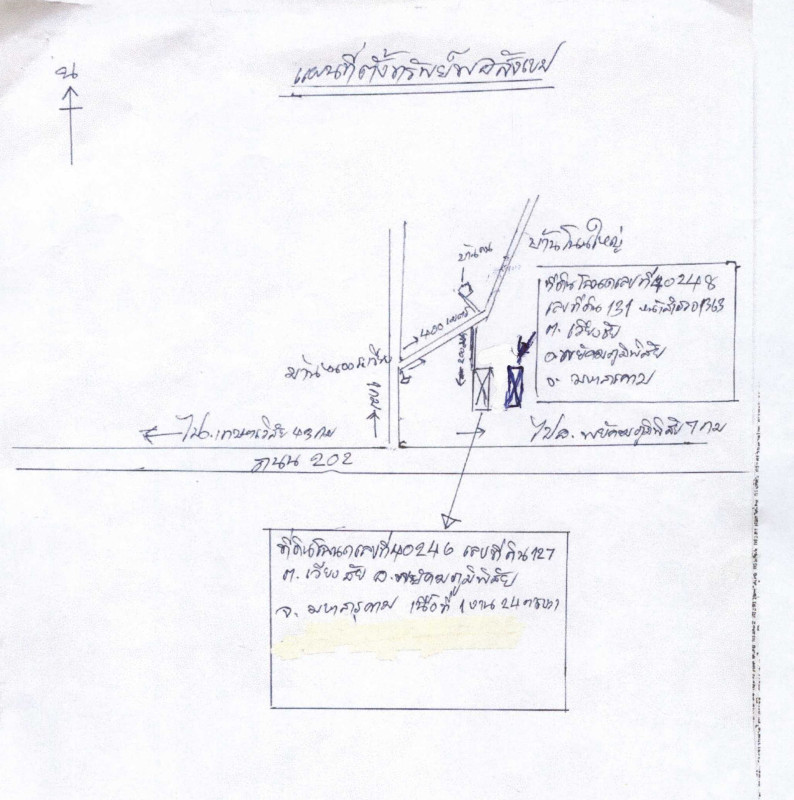 น
แผนที่ตั้งทรัพย์พอสังเขป
บ้านโนนใหญ่
บ้านคน
ที่ดินโฉนดเลขที่ 40248
เลขที่ดิน 131 หน้าสำรวจ 1363
ต. เวียงชัย
อ. พยัคฆภูมิพิสัย
จ. มหาสารคาม
400 เมตร
200 เมตร
บ้าน
ไป อ. เกษตรวิสัย 43 กม
ไป อ. พยัคฆภูมิพิสัย 7 กม
ถนน 202
ที่ดินโฉนดเลขที่ 40246 เลขที่ดิน 127
ต. เวียงชัย อ. พยัคฆภูมิพิสัย
จ. มหาสารคาม เนื้อที่ 1 งาน 24 ตรวา